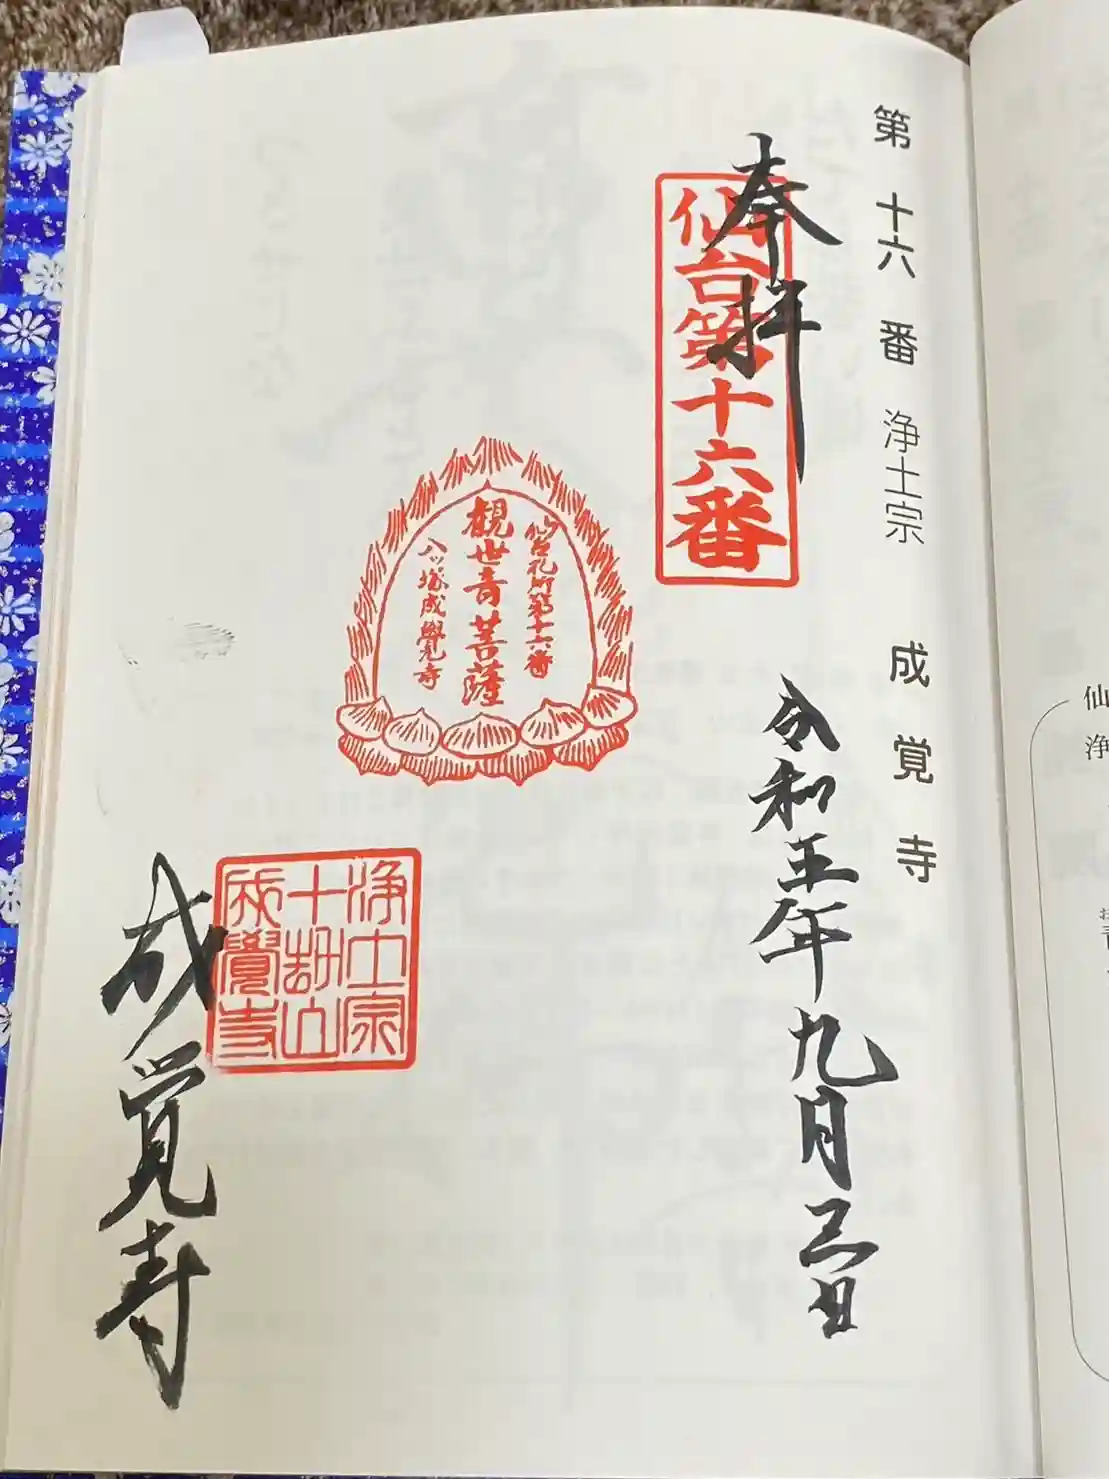 第十六番 浄土宗 成覚寺
奉拝
仙台第十六番
令和五年九月三日
仙台札所第十六番
観世音菩薩
八ツ塚成覺寺
浄土宗
十劫山
成覺寺
成覚寺
仙
浄